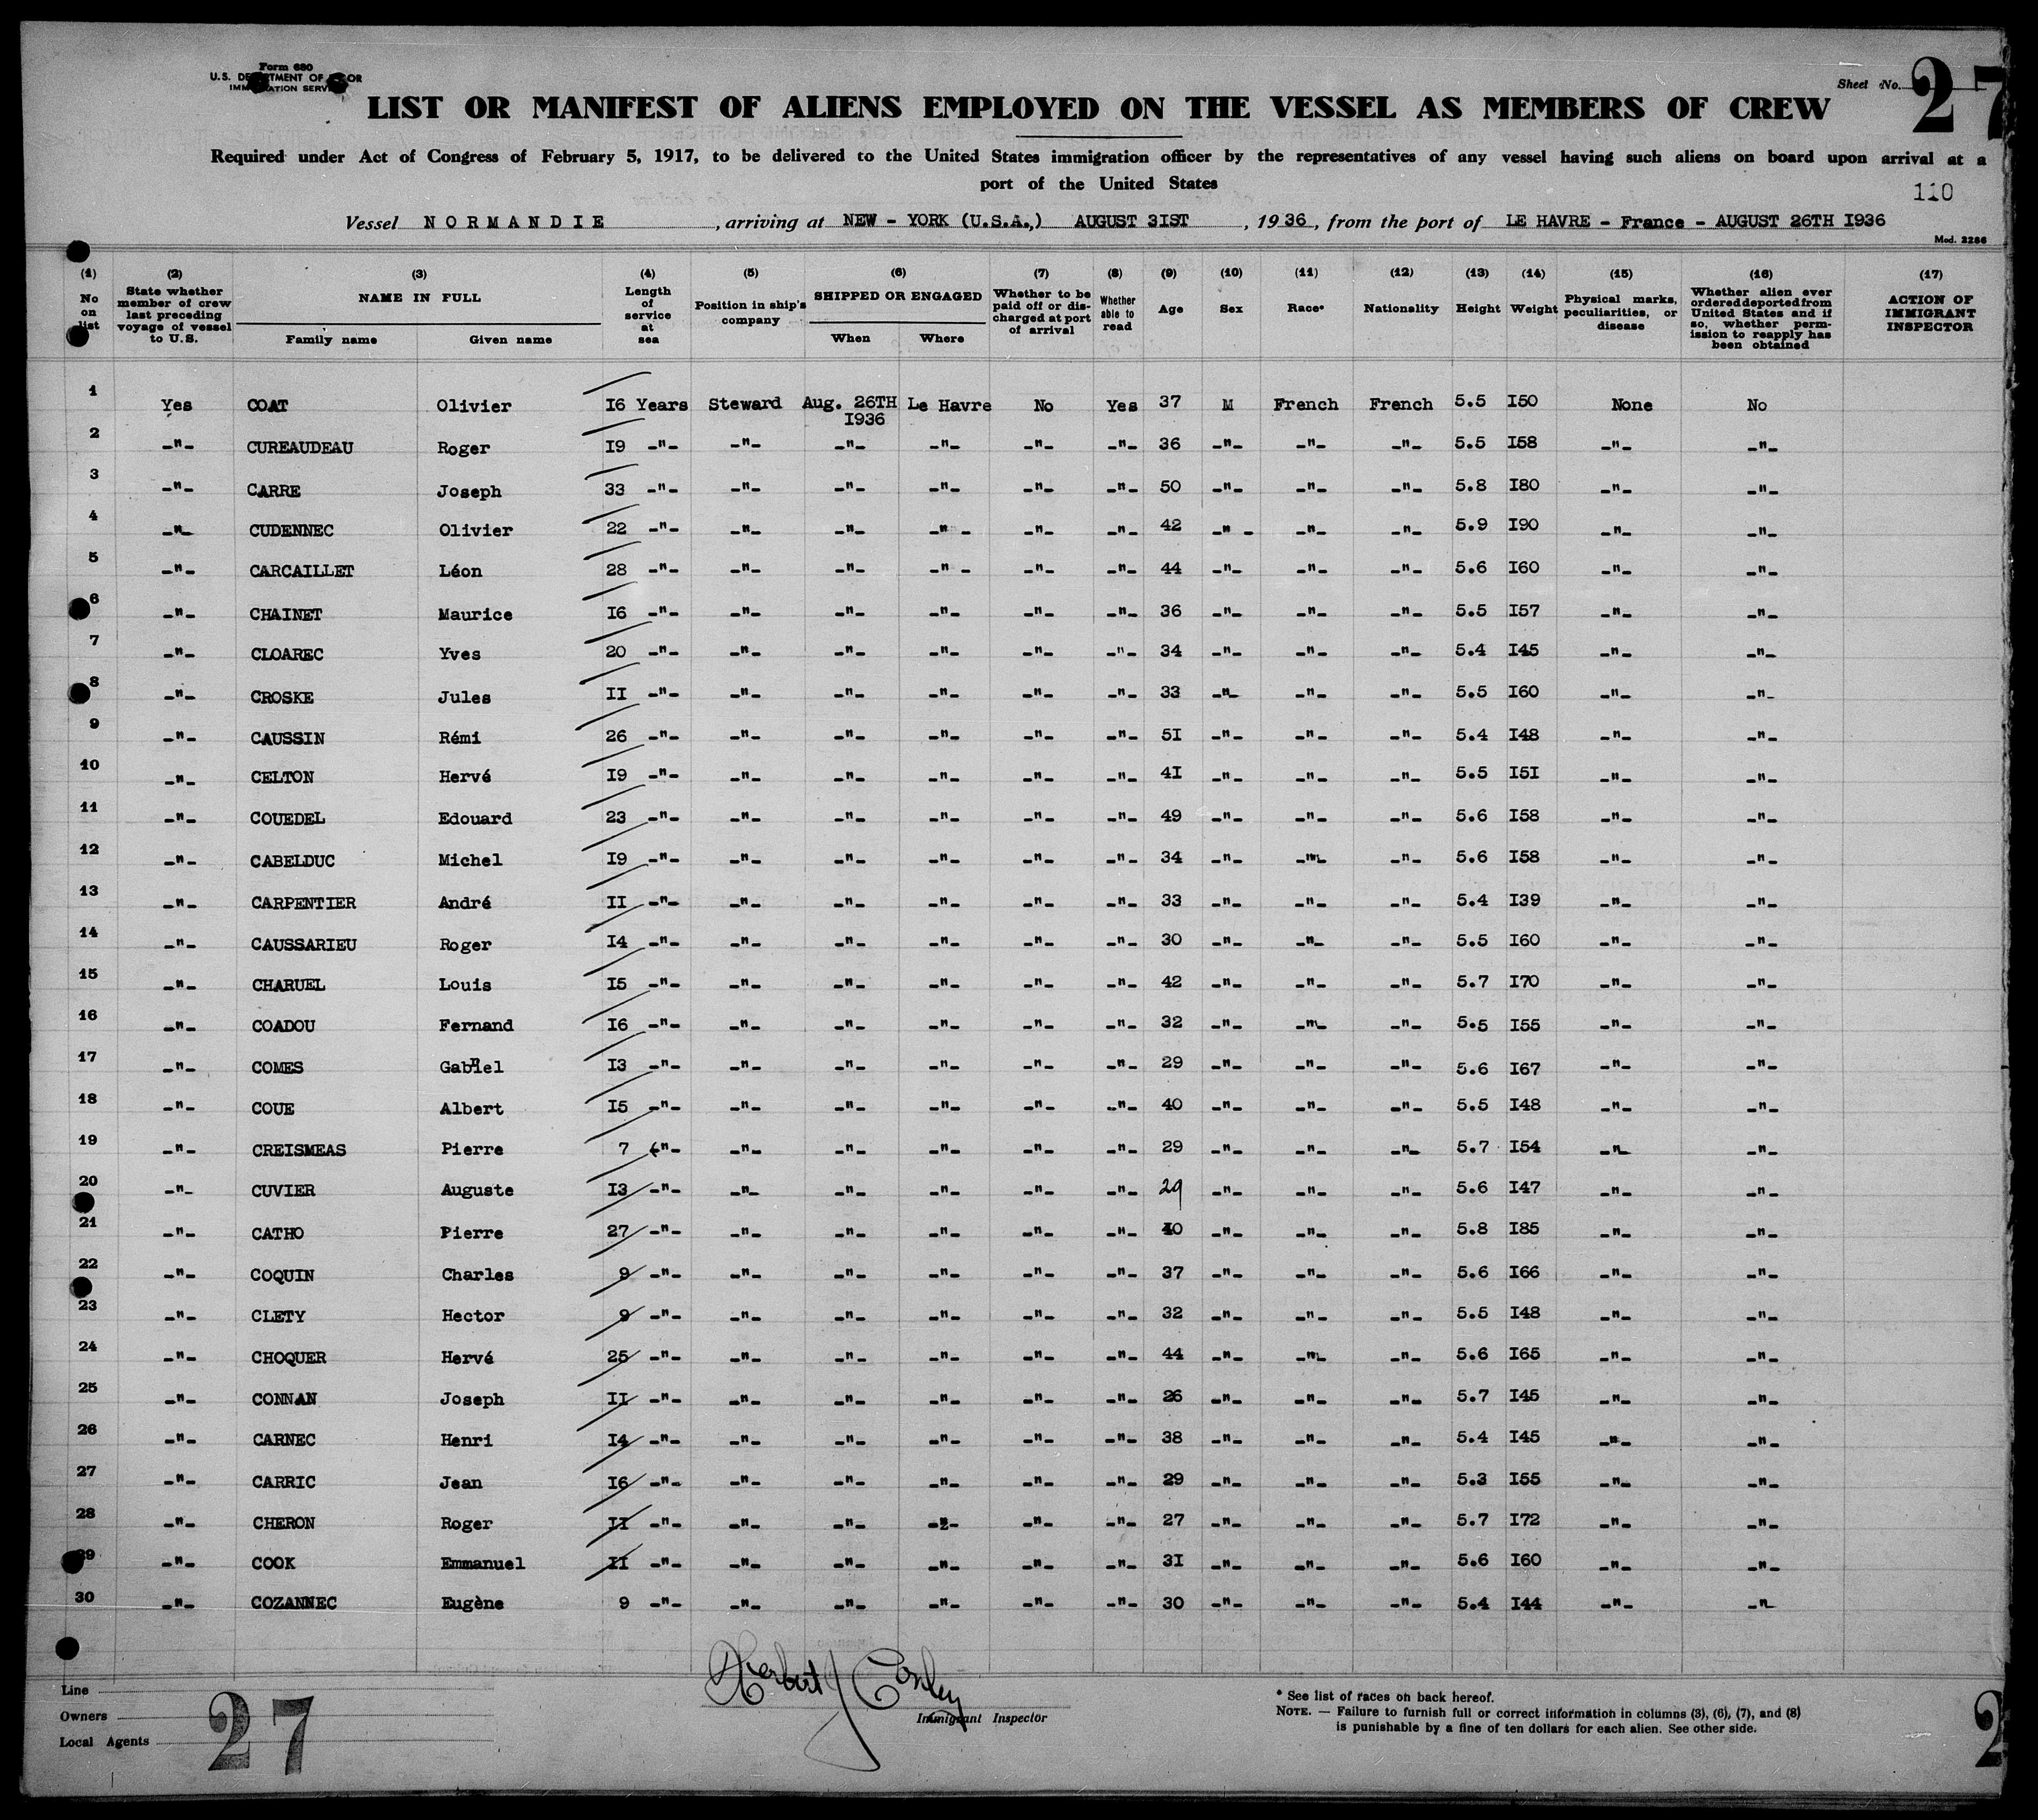 Form 680
U.S. DEPARTMENT OF LABOR
IMMIGRATION SERVICE
Sheet No. 27
LIST OR MANIFEST OF ALIENS EMPLOYED ON THE VESSEL AS MEMBERS OF CREW
Required under Act of Congress of February 5, 1917, to be delivered to the United States immigration officer by the representatives of any vessel having such aliens on board upon arrival at a
port of the United States
110
Vessel NORMANDIE, arriving at NEW - YORK (U.S.A.,) AUGUST 3IST, 1936, from the port of LE HAVRE - France - AUGUST 26TH I936
Mod. 2286
(1) No on list (2) State whether member of crew last preceding voyage of vessel to U.S. (3) NAME IN FULL Family name Given name (4) Length of service at sea (5) Position in ship's company (6) SHIPPED OR ENGAGED When Where (7) Whether to be paid off or discharged at port of arrival (8) Whether able to read (9) Age (10) Sex (11) Race* (12) Nationality (13) Height (14) Weight (15) Physical marks, peculiarities, or disease (16) Whether alien ever ordered deported from United States and if so, whether permission to reapply has been obtained (17) ACTION OF IMMIGRANT INSPECTOR
1 Yes COAT Olivier I6 Years Steward Aug. 26TH I936 Le Havre No Yes 37 M French French 5.5 I50 None No
2 -"- CUREAUDEAU Roger I9 -"- -"- -"- -"- -"- -"- 36 -"- -"- -"- 5.5 I58 -"- -"-
3 -"- CARRE Joseph 33 -"- -"- -"- -"- -"- -"- 50 -"- -"- -"- 5.8 I80 -"- -"-
4 -"- CUDENNEC Olivier 22 -"- -"- -"- -"- -"- -"- 42 -"- -"- -"- 5.9 I90 -"- -"-
5 -"- CARCAILLET Léon 28 -"- -"- -"- -"- -"- -"- 44 -"- -"- -"- 5.6 I60 -"- -"-
6 -"- CHAINET Maurice I6 -"- -"- -"- -"- -"- -"- 36 -"- -"- -"- 5.5 I57 -"- -"-
7 -"- CLOAREC Yves 20 -"- -"- -"- -"- -"- -"- 34 -"- -"- -"- 5.4 I45 -"- -"-
8 -"- CROSKE Jules II -"- -"- -"- -"- -"- -"- 33 -"- -"- -"- 5.5 I60 -"- -"-
9 -"- CAUSSIN Rémi 26 -"- -"- -"- -"- -"- -"- 5I -"- -"- -"- 5.4 I48 -"- -"-
10 -"- CELTON Hervé I9 -"- -"- -"- -"- -"- -"- 4I -"- -"- -"- 5.5 I5I -"- -"-
11 -"- COUEDEL Edouard 23 -"- -"- -"- -"- -"- -"- 49 -"- -"- -"- 5.6 I58 -"- -"-
12 -"- CABELDUC Michel I9 -"- -"- -"- -"- -"- -"- 34 -"- -"- -"- 5.6 I58 -"- -"-
13 -"- CARPENTIER André II -"- -"- -"- -"- -"- -"- 33 -"- -"- -"- 5.4 I39 -"- -"-
14 -"- CAUSSARIEU Roger I4 -"- -"- -"- -"- -"- -"- 30 -"- -"- -"- 5.5 I60 -"- -"-
15 -"- CHARUEL Louis I5 -"- -"- -"- -"- -"- -"- 42 -"- -"- -"- 5.7 I70 -"- -"-
16 -"- COADOU Fernand I6 -"- -"- -"- -"- -"- -"- 32 -"- -"- -"- 5.5 I55 -"- -"-
17 -"- COMES Gabriel I3 -"- -"- -"- -"- -"- -"- 29 -"- -"- -"- 5.6 I67 -"- -"-
18 -"- COUE Albert I5 -"- -"- -"- -"- -"- -"- 40 -"- -"- -"- 5.5 I48 -"- -"-
19 -"- CREISMEAS Pierre 7 -"- -"- -"- -"- -"- -"- 29 -"- -"- -"- 5.7 I54 -"- -"-
20 -"- CUVIER Auguste I3 -"- -"- -"- -"- -"- -"- 29 -"- -"- -"- 5.6 I47 -"- -"-
21 -"- CATHO Pierre 27 -"- -"- -"- -"- -"- -"- 40 -"- -"- -"- 5.8 I85 -"- -"-
22 -"- COQUIN Charles 9 -"- -"- -"- -"- -"- -"- 37 -"- -"- -"- 5.6 I66 -"- -"-
23 -"- CLETY Hector 9 -"- -"- -"- -"- -"- -"- 32 -"- -"- -"- 5.5 I48 -"- -"-
24 -"- CHOQUER Hervé 25 -"- -"- -"- -"- -"- -"- 44 -"- -"- -"- 5.6 I65 -"- -"-
25 -"- CONNAN Joseph II -"- -"- -"- -"- -"- -"- 26 -"- -"- -"- 5.7 I45 -"- -"-
26 -"- CARNEC Henri I4 -"- -"- -"- -"- -"- -"- 38 -"- -"- -"- 5.4 I45 -"- -"-
27 -"- CARRIC Jean I6 -"- -"- -"- -"- -"- -"- 29 -"- -"- -"- 5.3 I55 -"- -"-
28 -"- CHERON Roger II -"- -"- -"- -"- -"- -"- 27 -"- -"- -"- 5.7 I72 -"- -"-
29 -"- COOK Emmanuel II -"- -"- -"- -"- -"- -"- 3I -"- -"- -"- 5.6 I60 -"- -"-
30 -"- COZANNEC Eugène 9 -"- -"- -"- -"- -"- -"- 30 -"- -"- -"- 5.4 I44 -"- -"-
Line
Owners
Local Agents
27
Herbert J Conley
Immigrant Inspector
* See list of races on back hereof.
NOTE. — Failure to furnish full or correct information in columns (3), (6), (7), and (8)
is punishable by a fine of ten dollars for each alien. See other side.
2